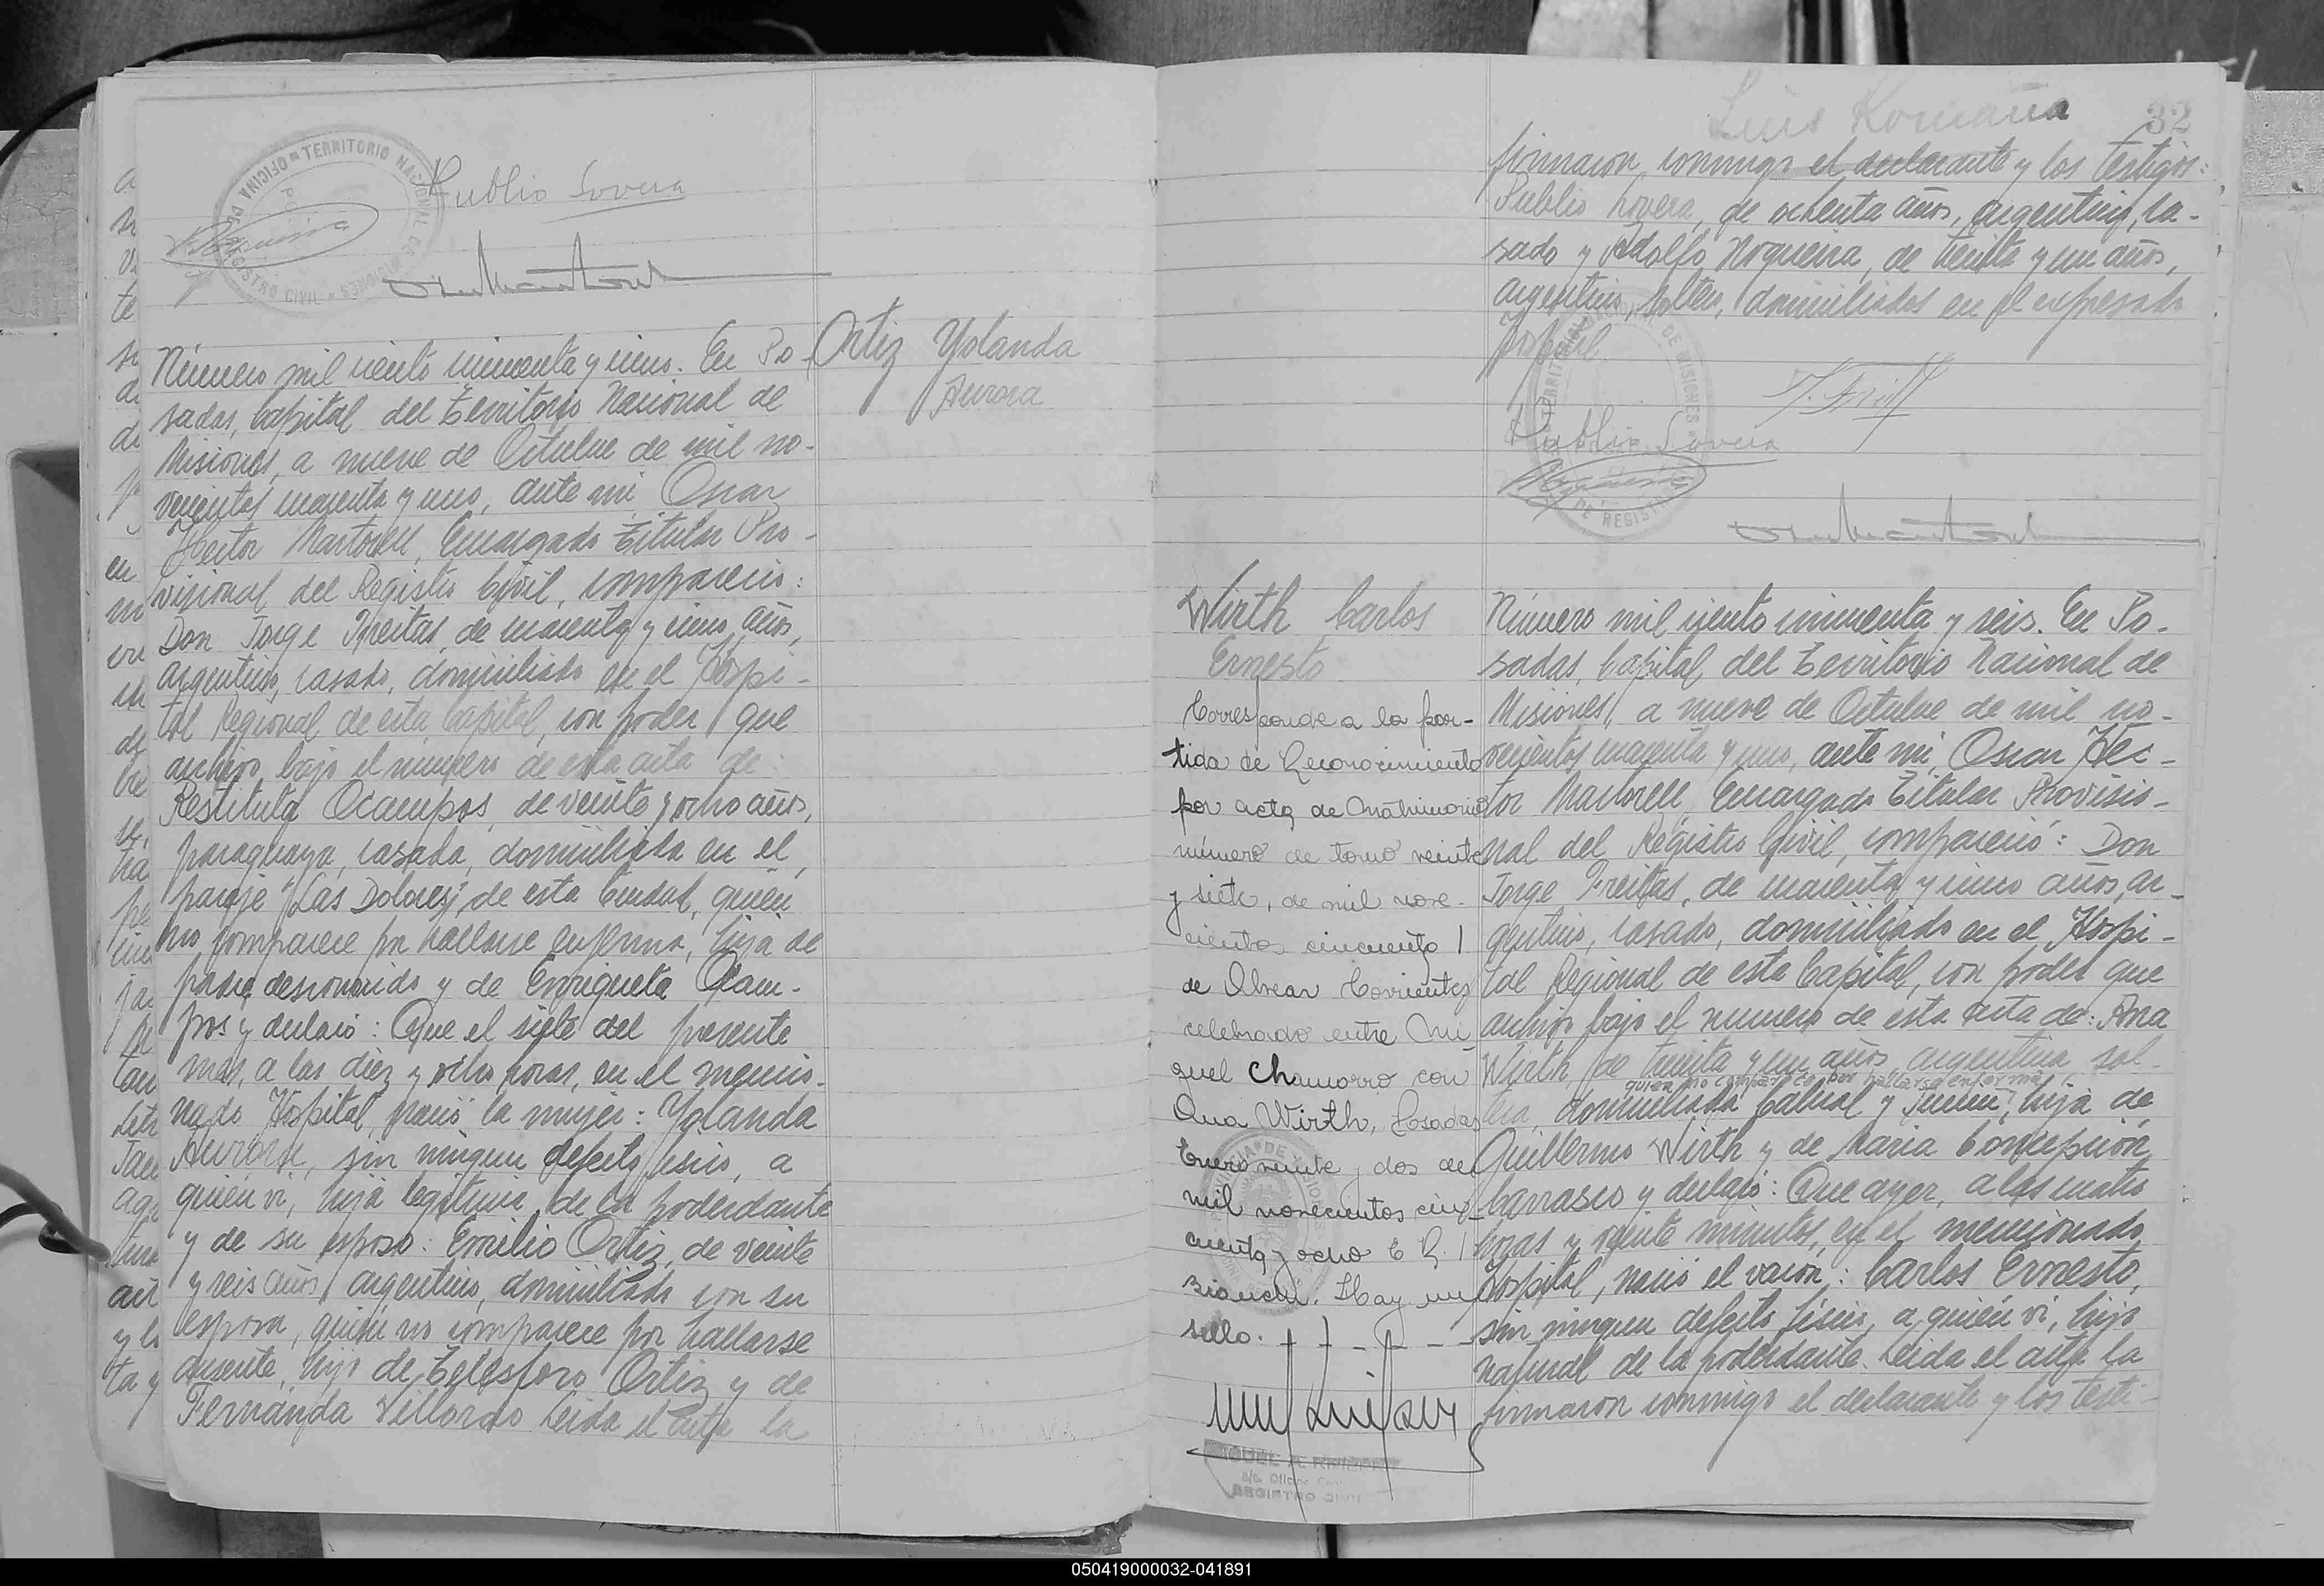 OFICINA DE REGISTRO CIVIL = TERRITORIO NACIONAL DE MISIONES
Publio Lovera
Ortiz Yolanda
Aurora
Número mil ciento cincuenta y cinco. En Po-
sadas, Capital del Territorio Nacional de
Misiones, a nueve de Octubre de mil no-
vecientos cuarenta y uno, ante mi Oscar
Hector Martorell, Encargado Titular Pro-
visional del Registro Civil, compareció:
Don Jorge Freitas, de cuarenta y cinco años,
argentino, casado, domiciliado en el Hospi-
tal Regional de esta Capital, con poder que
archivo bajo el numero de esta acta de:
Restituta Ocampos, de veinte y ocho años,
paraguaya, casada, domiciliada en el
paraje "Las Dolores", de esta Ciudad, quien
no comparece por hallarse enferma, hija de
padre desconocido y de Enriqueta Ocam-
pos y declaró: Que el siete del presente
mes, a las diez y ocho horas, en el mencio-
nado Hospital, nació la mujer: Yolanda
Aurora, sin ningun defecto fisico, a
quién vi, hija legitima de la poderdante
y de su esposo: Emilio Ortiz, de veinte
y seis años, argentino, domiciliado con su
esposa, quién no comparece por hallarse
ausente, hijo de Telesforo Ortiz y de
Fernanda Villordo. Leida el acta la
Luis Romaña
32
firmaron conmigo el declarante y los testigos:
Publio Lovera, de ochenta años, argentino, ca-
sado y Adolfo Nogueira, de treinta y un años,
argentino, soltero, domiciliados en el expresado
Hospital
J. Freitas
Publio Lovera
Wirth Carlos
Ernesto
Corresponde a la par-
tida de Reconocimiento
por acta de Matrimonio
número de tomo veinte
y siete, de mil nove-
cientos cincuenta
de Alvear Corrientes
celebrado entre Mi-
guel Chamorro con
Ana Wirth, Posadas
Enero veinte y dos de
mil novecientos cin-
cuenta y ocho E. R.
Bianchi. Hay un
sello.
REGISTRO CIVIL
Número mil ciento cincuenta y seis. En Po-
sadas, Capital del Territorio Nacional de
Misiones, a nueve de Octubre de mil no-
vecientos cuarenta y uno, ante mi, Oscar Hec-
tor Martorell, Encargado Titular Provisio-
nal del Registro Civil, compareció: Don
Jorge Freitas, de cuarenta y cinco años, ar-
gentino, casado, domiciliado en el Hospi-
tal Regional de esta Capital, con poder que
archivo bajo el numero de esta acta de: Ana
Wirth, de treinta y un años, argentina, sol-
quien no comparece por hallarse enferma
tera, domiciliada Cabral y Junin, hija de
Guillermo Wirth y de Maria Concepción
Carrasco y declaró: Que ayer, a las cuatro
horas y veinte minutos, en el mencionado
Hospital, nació el varón: Carlos Ernesto,
sin ningun defecto fisico, a quién vi, hijo
natural de la poderdante. Leida el acta la
firmaron conmigo el declarante y los testi-
050419000032-041891